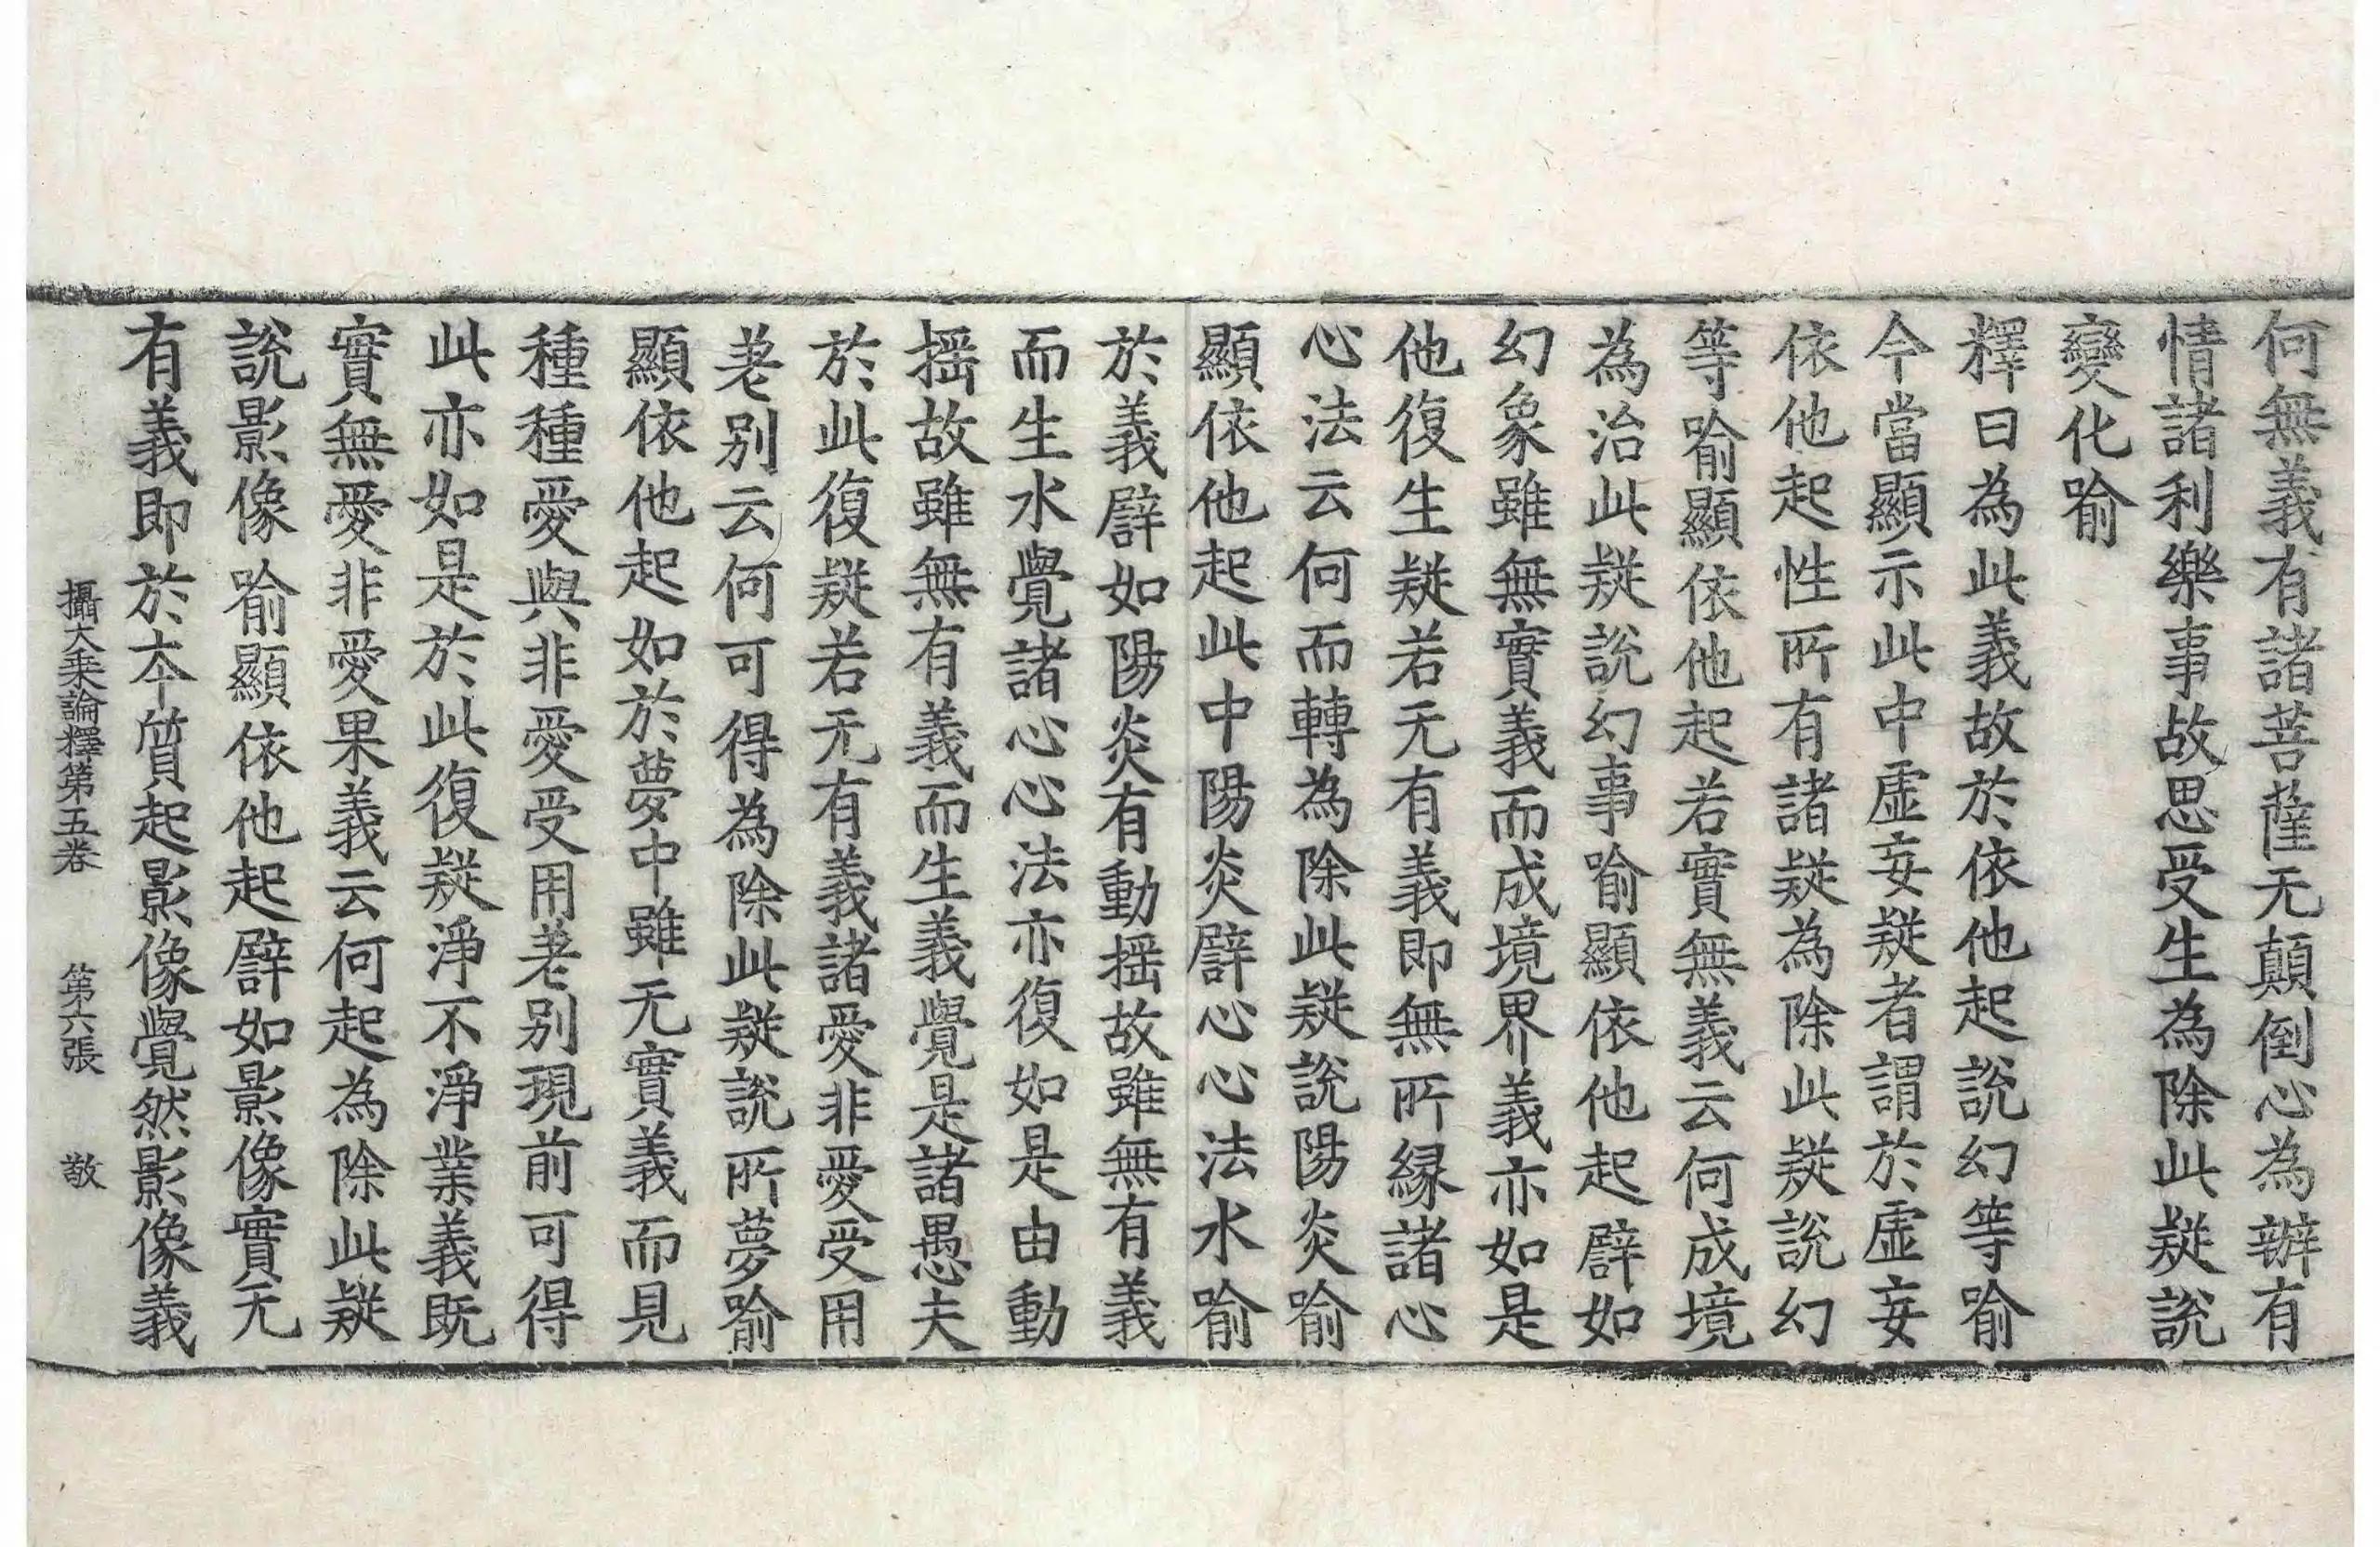 何無義有諸菩薩无顛倒心為辦有
情諸利樂事故思受生為除此疑說
變化喻
釋曰為此義故於依他起說幻等喻
今當顯示此中虛妄疑者謂於虛妄
依他起性所有諸疑為除此疑說幻
等喻顯依他起若實無義云何成境
為治此疑說幻事喻顯依他起譬如
幻象雖無實義而成境界義亦如是
他復生疑若无有義即無所緣諸心
心法云何而轉為除此疑說陽炎喻
顯依他起此中陽炎譬心心法水喻
於義譬如陽炎有動搖故雖無有義
而生水覺諸心心法亦復如是由動
搖故雖無有義而生義覺是諸愚夫
於此復疑若无有義諸愛非愛受用
差別云何可得為除此疑說所夢喻
顯依他起如於夢中雖无實義而見
種種愛與非愛受用差別現前可得
此亦如是於此復疑淨不淨業義既
實無愛非愛果義云何起為除此疑
說影像喻顯依他起譬如影像實无
有義即於本質起影像覺然影像義
攝大乘論釋第五卷 第六張 敬